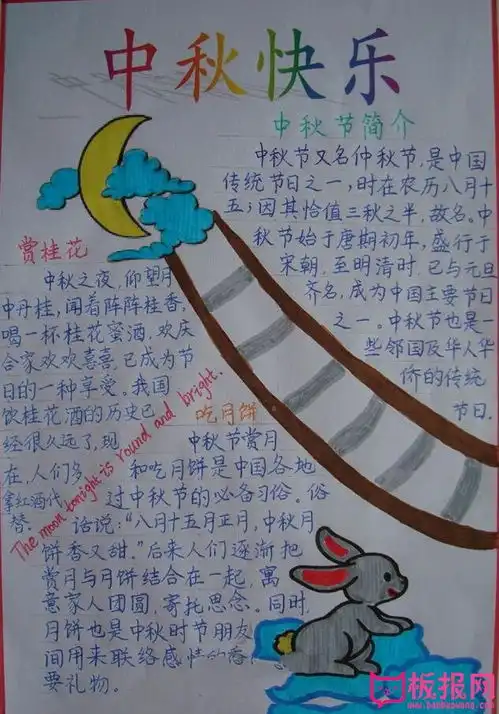 中秋快乐
中秋节简介
中秋节又名仲秋节,是中国
传统节日之一,时在农历八月十
五;因其恰值三秋之半,故名。中
秋节始于唐期初年,盛行于
宋朝,至明清时,已与元旦
齐名,成为中国主要节日
之一。中秋节也是一
些邻国及华人华
侨的传统
节日.
赏桂花
中秋之夜,仰望月
中丹桂,闻着阵阵桂香,
喝一杯桂花蜜酒,欢庆
合家欢欢喜喜,已成为节
日的一种享受。我国
饮桂花酒的历史已
经很久远了,现
在,人们多
拿红酒代
替.
The moon tonight is round and bright.
吃月饼
中秋节赏月
和吃月饼是中国各地
过中秋节的必备习俗。俗
话说:“八月十五月正月,中秋月
饼香又甜.”后来人们逐渐把
赏月与月饼结合在一起,寓
意家人团圆,寄托思念。同时,
月饼也是中秋时节朋友
间用来联络感情的
要礼物。
板报网
www.banbaowang.com